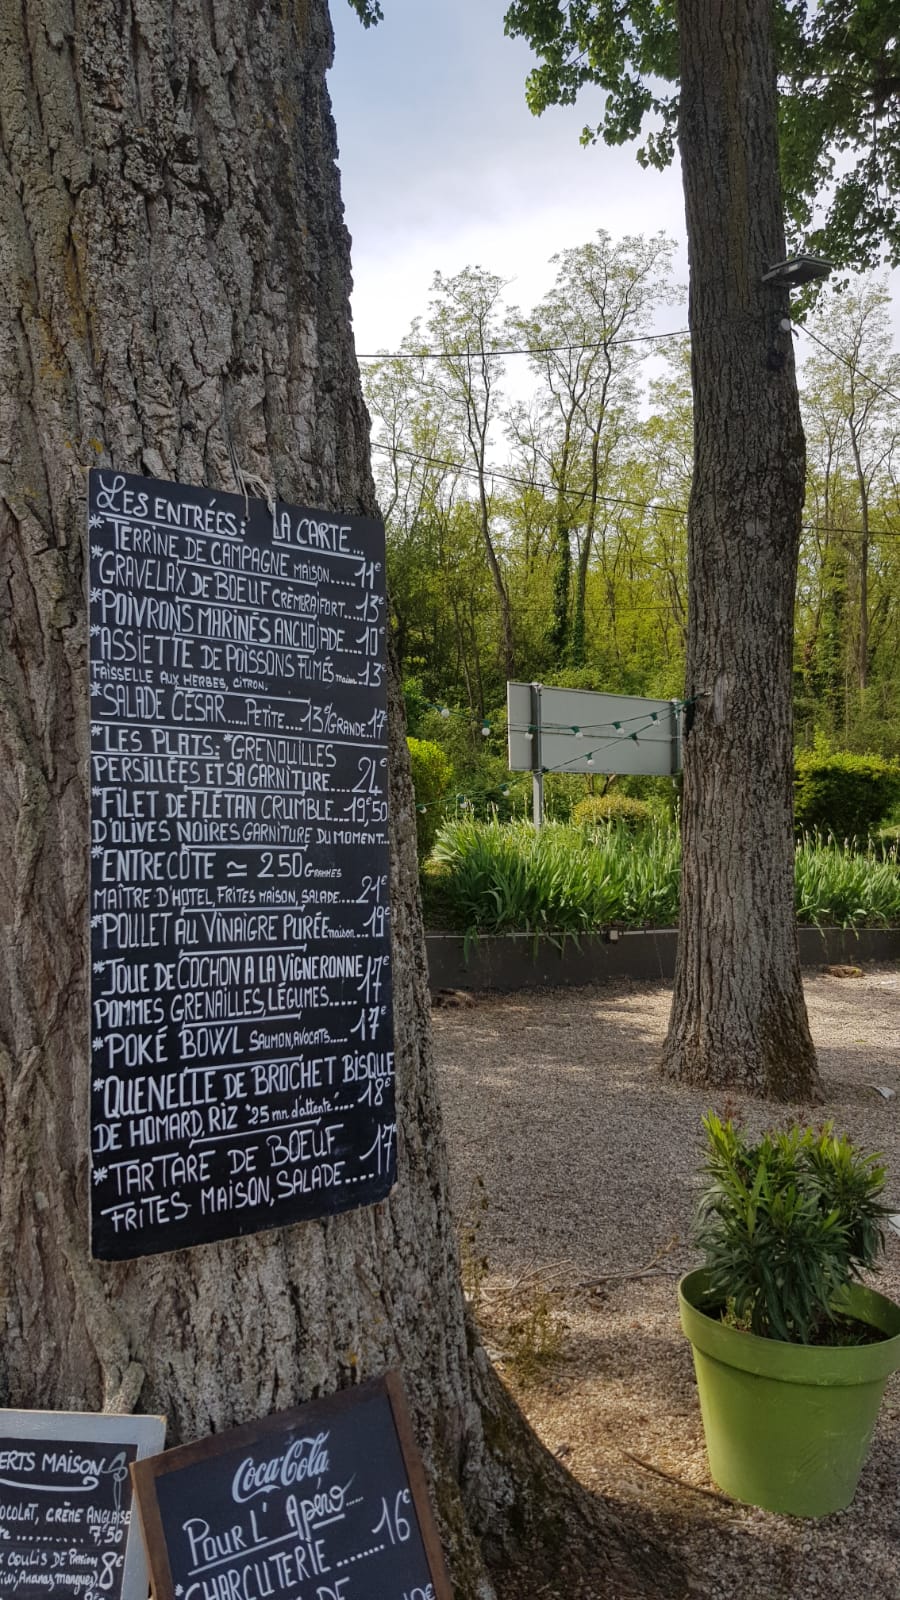 LES ENTRÉES: LA CARTE...
*TERRINE DE CAMPAGNE MAISON.....11€
*GRAVELAX DE BOEUF CREM RAIFORT...13€
*POIVRONS MARINÉS ANCHOIADE...10€
*ASSIETTE DE POISSONS FUMÉS maison...13€
FAISSELLE AUX HERBES, CITRON.
*SALADE CÉSAR.....PETITE....13€/GRANDE..17€
*LES PLATS: *GRENOUILLES
PERSILLÉES ET SA GARNITURE....24€
*FILET DE FLÉTAN CRUMBLE...19€,50
D'OLIVES NOIRES GARNITURE DU MOMENT...
*ENTRECÔTE ≃ 250 GRAMMES
MAÎTRE D'HÔTEL, FRITES MAISON, SALADE....21€
*POULET AU VINAIGRE PURÉE maison...19€
*JOUE DE COCHON A LA VIGNERONNE 17€
POMMES GRENAILLES, LÉGUMES.....
*POKÉ BOWL SAUMON, AVOCATS.....17€
*QUENELLE DE BROCHET BISQUE
DE HOMARD, RIZ "25 mn d'attente"....18€
*TARTARE DE BOEUF 17€
FRITES MAISON, SALADE....
ERTS MAISON
OCOLAT, CRÈME ANGLAISE
7,50
COULIS DE Passion
Kiwi, Ananas, mangues) 8€
Coca-Cola
POUR L' Apéro....
*CHARCUTERIE........16€
DE